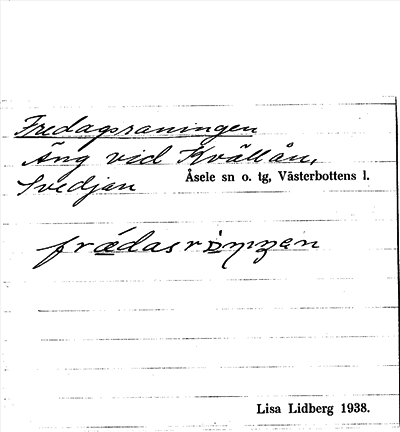 Fredagsraningen
Äng vid Kvällån,
Åsele sn o. tg, Västerbottens l.
Svedjan
Lisa Lidberg 1938.